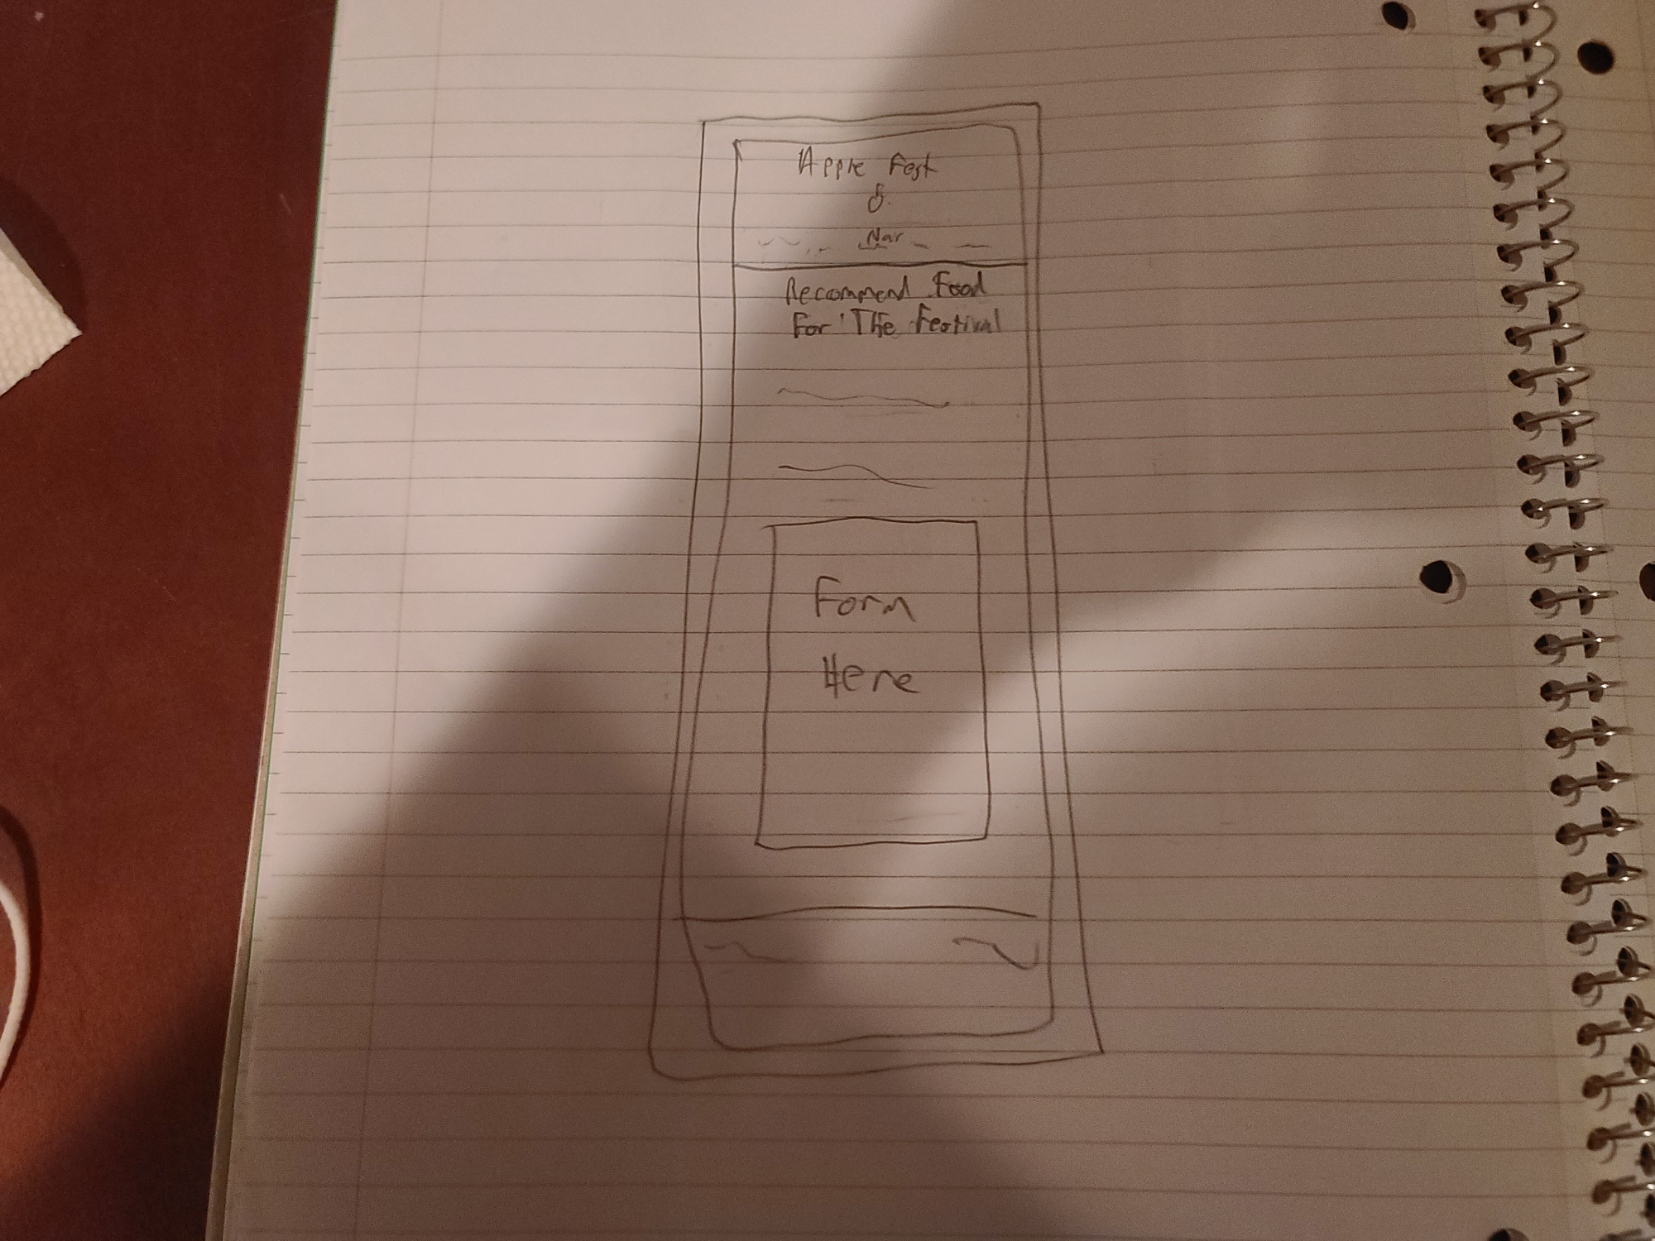 Apple Fest
Nav
Recommend Food
For The Festival
Form
Here